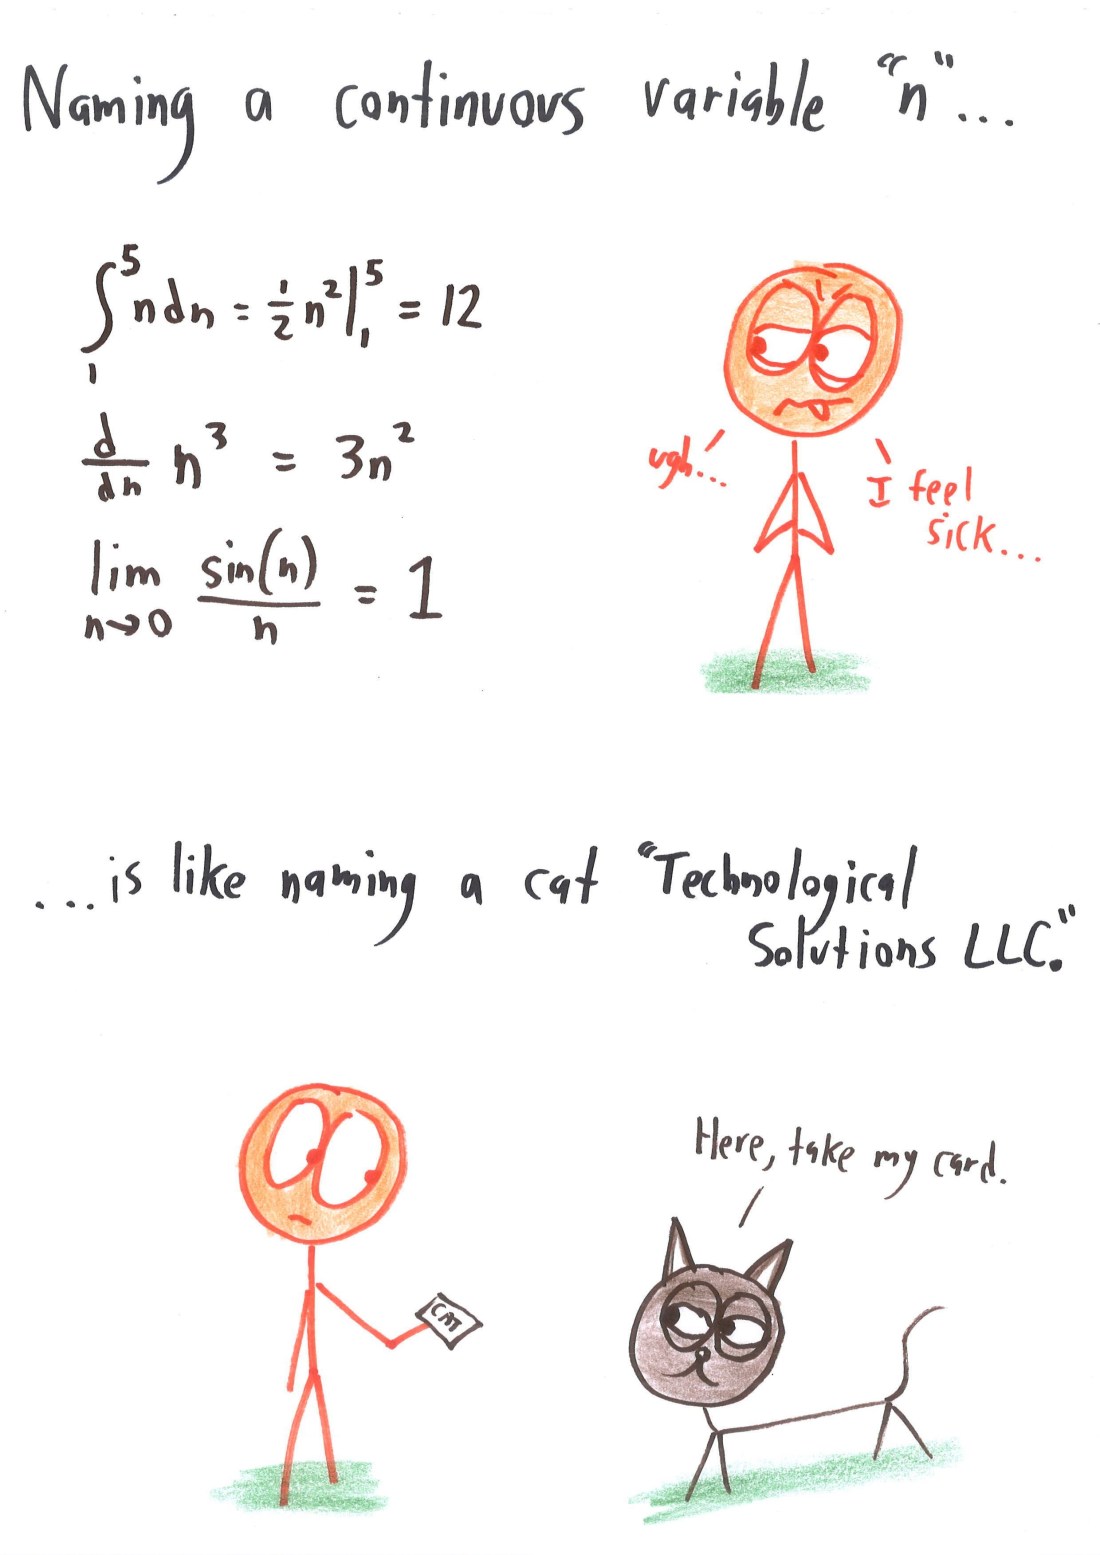 Naming a continuous variable “n”...
∫₁⁵ n dn = ½ n² |₁⁵ = 12
d/dn n³ = 3n²
lim n→0 sin(n)/n = 1
ugh...
I feel
sick...
...is like naming a cat “Technological
Solutions LLC.”
Here, take my card.
CAT